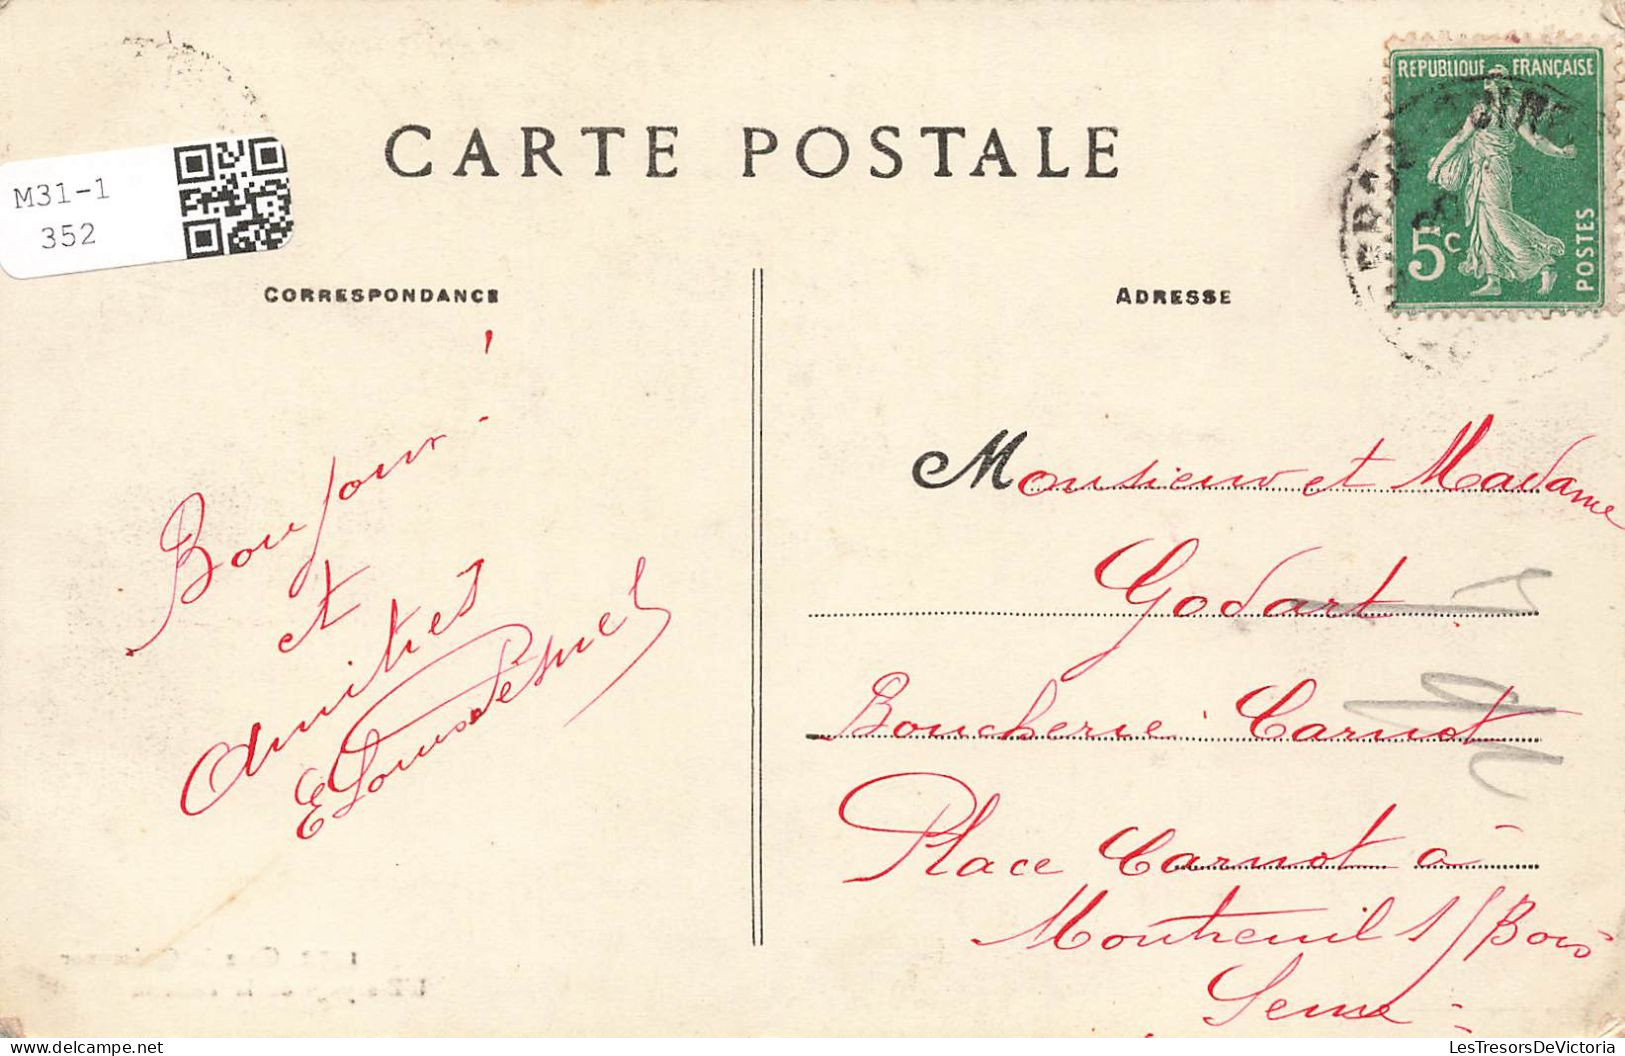 REPUBLIQUE FRANÇAISE
5c
POSTES
CARTE POSTALE
M31-1
352
CORRESPONDANCE
ADRESSE
Bonjour !
et
Amitiés
Monsieur et Madame
Godart
Boucherie Carnot
Place Carnot à
Montreuil s/Bois
Seine
LesTresorsDeVictoria
www.delcampe.net